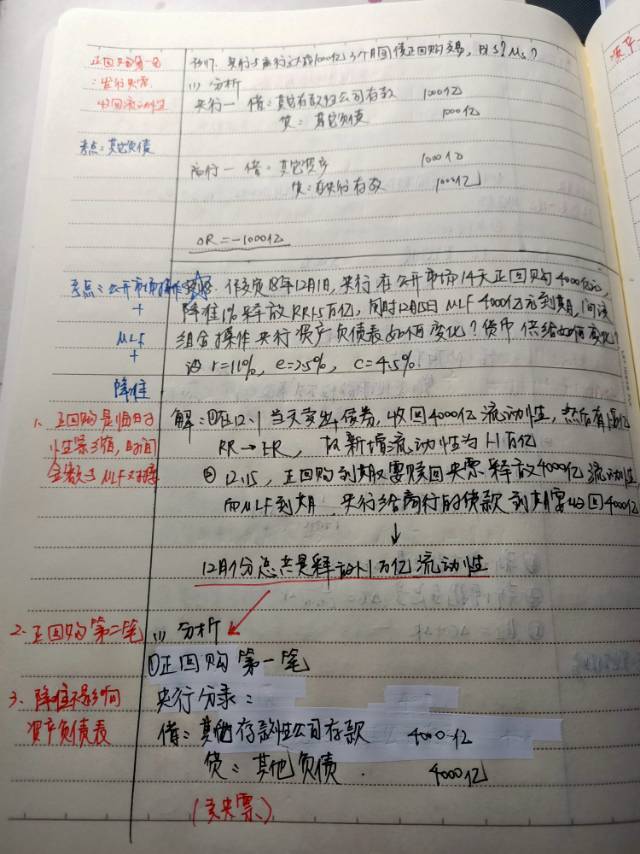 正回购第一笔
：发行央票
收回流动性
例7. 央行与商行达成1000亿3个月回债正回购交易, Ms?
(1) 分析
央行一 借：其他存款性公司存款 1000亿
贷：其它负债 1000亿
考点：其它负债
商行一 借：其它资产 1000亿
贷：存央行存款 1000亿
△R = -1000亿
考点：公开市场操作
+
MLF
+
降准
18年12月1日, 央行在公开市场14天正回购4000亿元,
降准1%释放RR1.5万亿, 同时12月15日MLF 4000亿元到期, 问该
组合操作央行资产负债表如何变化? 货币供给如何变化?
设 r=11%, e=2.5%, c=4.5%
1、正回购是
与MLF对
解：①在12.1当天卖出债券, 收回4000亿流动性, 然后有
RR→ER, 故新增流动性为1.1万亿
② 12.15, 正回购到期要赎回央票释放4000亿流动性
而MLF到期, 央行给商行的贷款到期要收回4000亿
↓
12月份总共是释放1.1万亿流动性
2、正回购第二笔
(1) 分析
①正回购第一笔
3、降准不影响
资产负债表
央行分录：
借：其他存款性公司存款 4000亿
贷：其他负债. 4000亿
(卖央票)